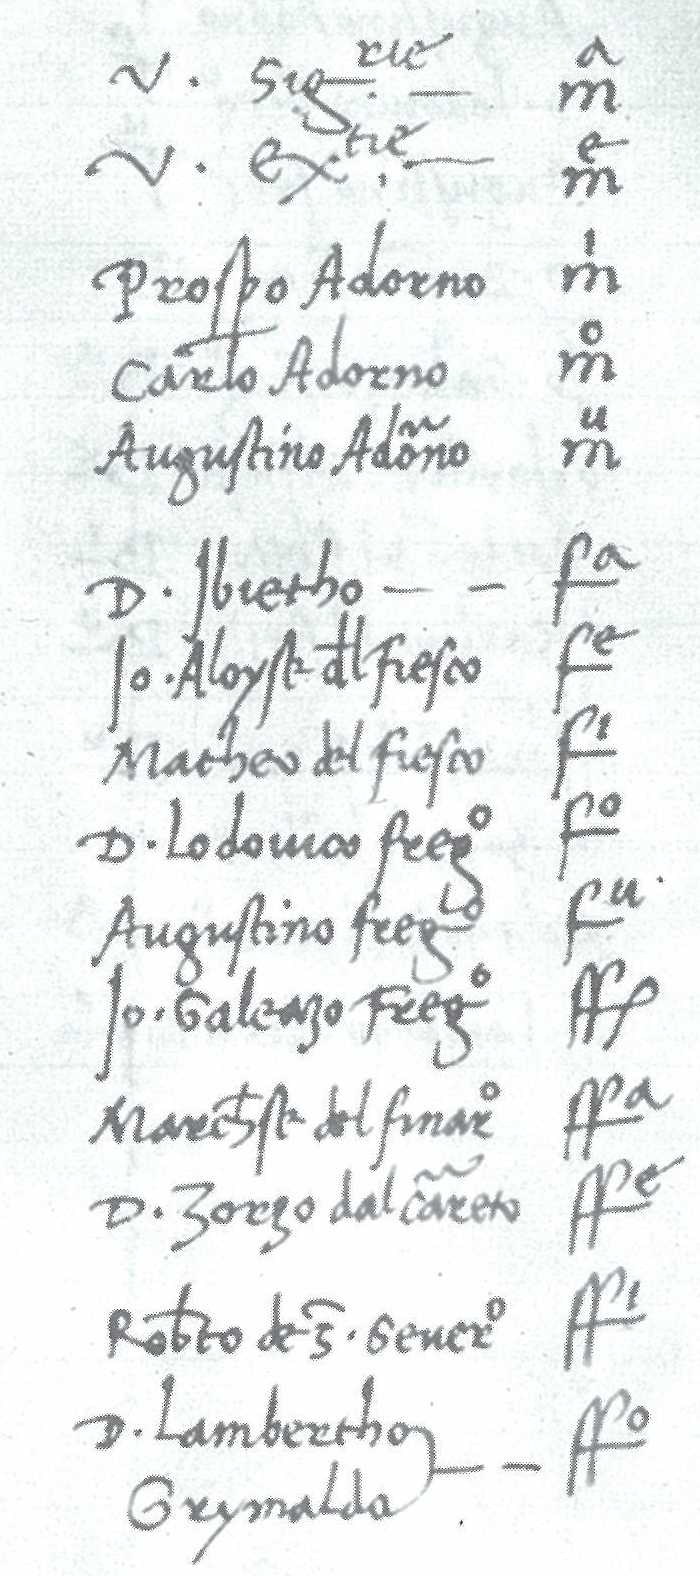 V. Sig.rie — m a
V. ex.tie — m e
Prospo Adorno m i
Carlo Adorno m o
Augustino Adoño m u
D. Ibietho — — f a
Jo. Aloysꝰ dl fiesco f e
Matheo del fiesco f i
D. Lodouico fregº f o
Augustino fregº f u.
Jo. Galeazo Fregº fff
Marchꝭse del finarº ff a
D. Zorzo dal cãreto ff e
Robto de S. Seuerº ff i
D. Lambertho — — ff o
Grymaldo